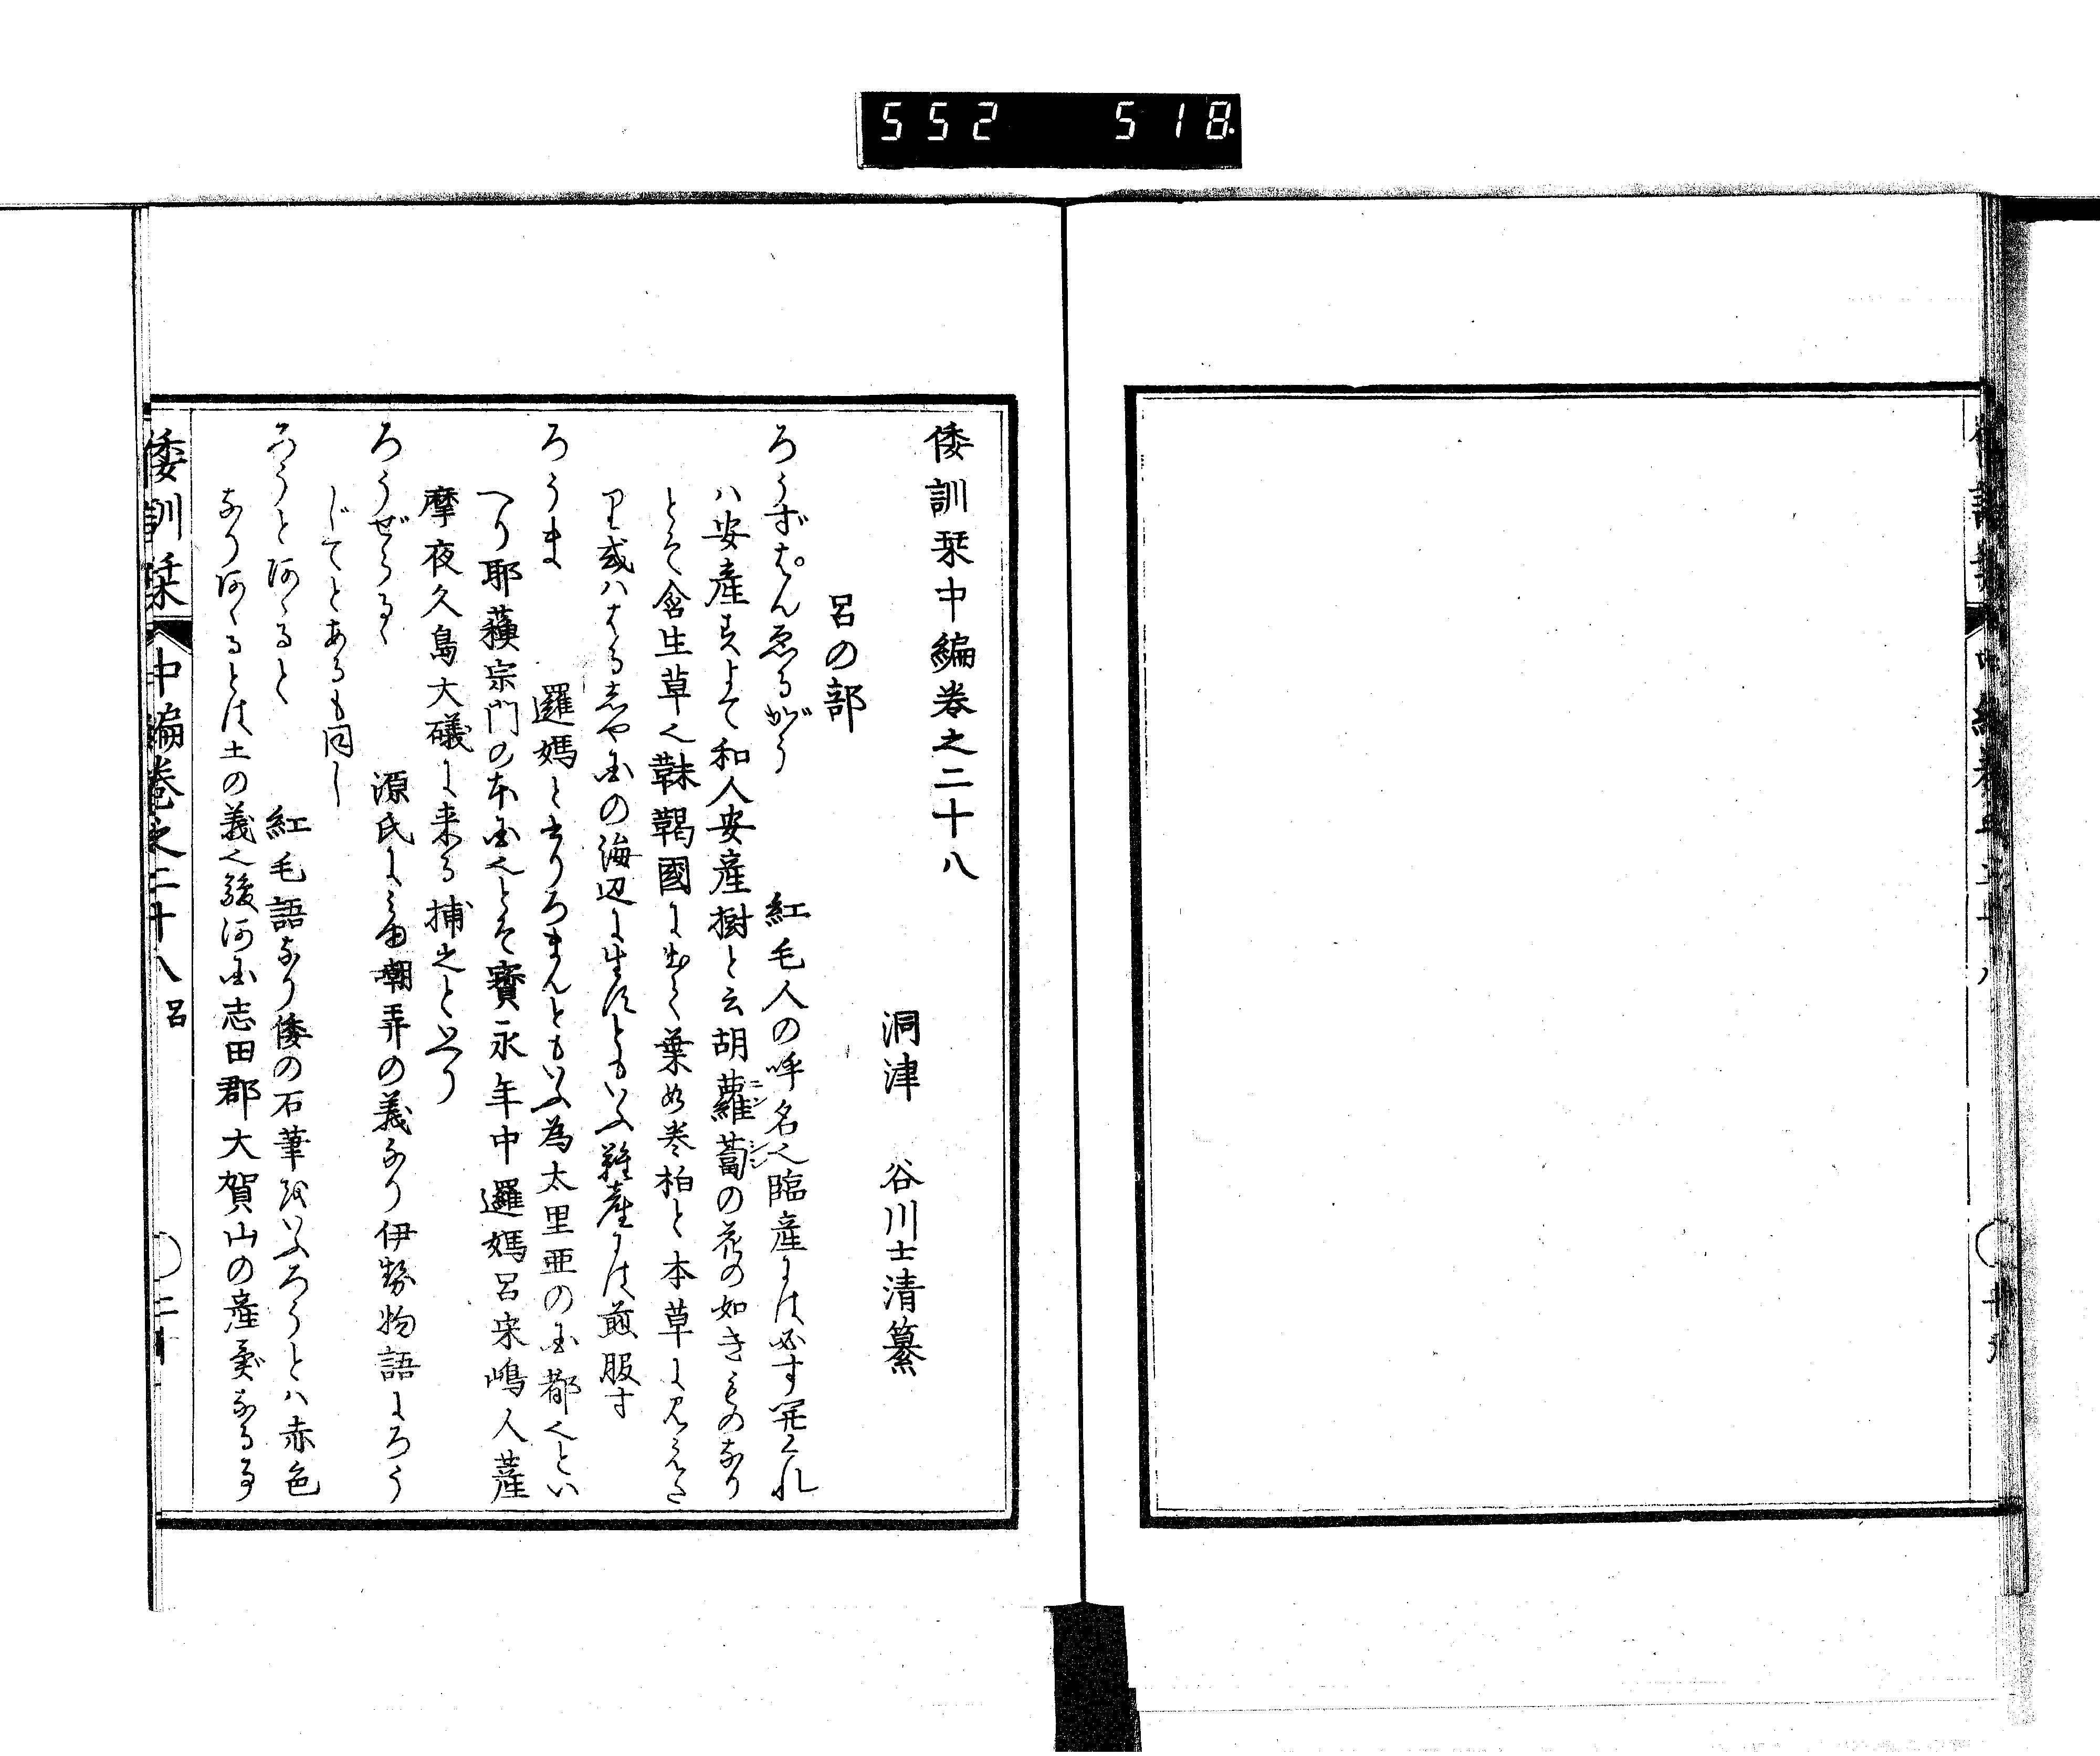 552 518
倭訓栞中編巻之二十八
洞津 谷川士清纂
呂の部
ろうずはんゑるがう 紅毛人の呼名也臨産には必す開くれ
ハ安産すよて和人安産樹と云胡蘿蔔の花の如きものなり
とそ含生草也靺鞨國に出く葉如巻柏と本草に見えた
り或ハはるしや国の海辺に生すともいふ難産には煎服す
ろうま 邏媽と書りろまんともいふ為太里亜の国都也とい
へり耶蘓宗門の本国也とそ寳永年中邏媽呂宋嶋人薩
摩夜久島大礒に来る捕之といへり
ろうぜらるゝ 源氏にみゆ嘲弄の義なり伊勢物語にろう
じてとあるも同し
ろうと 紅毛語なり倭の石筆をいふろうとハ赤色
なり とは土の義也駿河国志田郡大賀山の産
倭訓栞 中編巻之二十八 呂
ニンジン